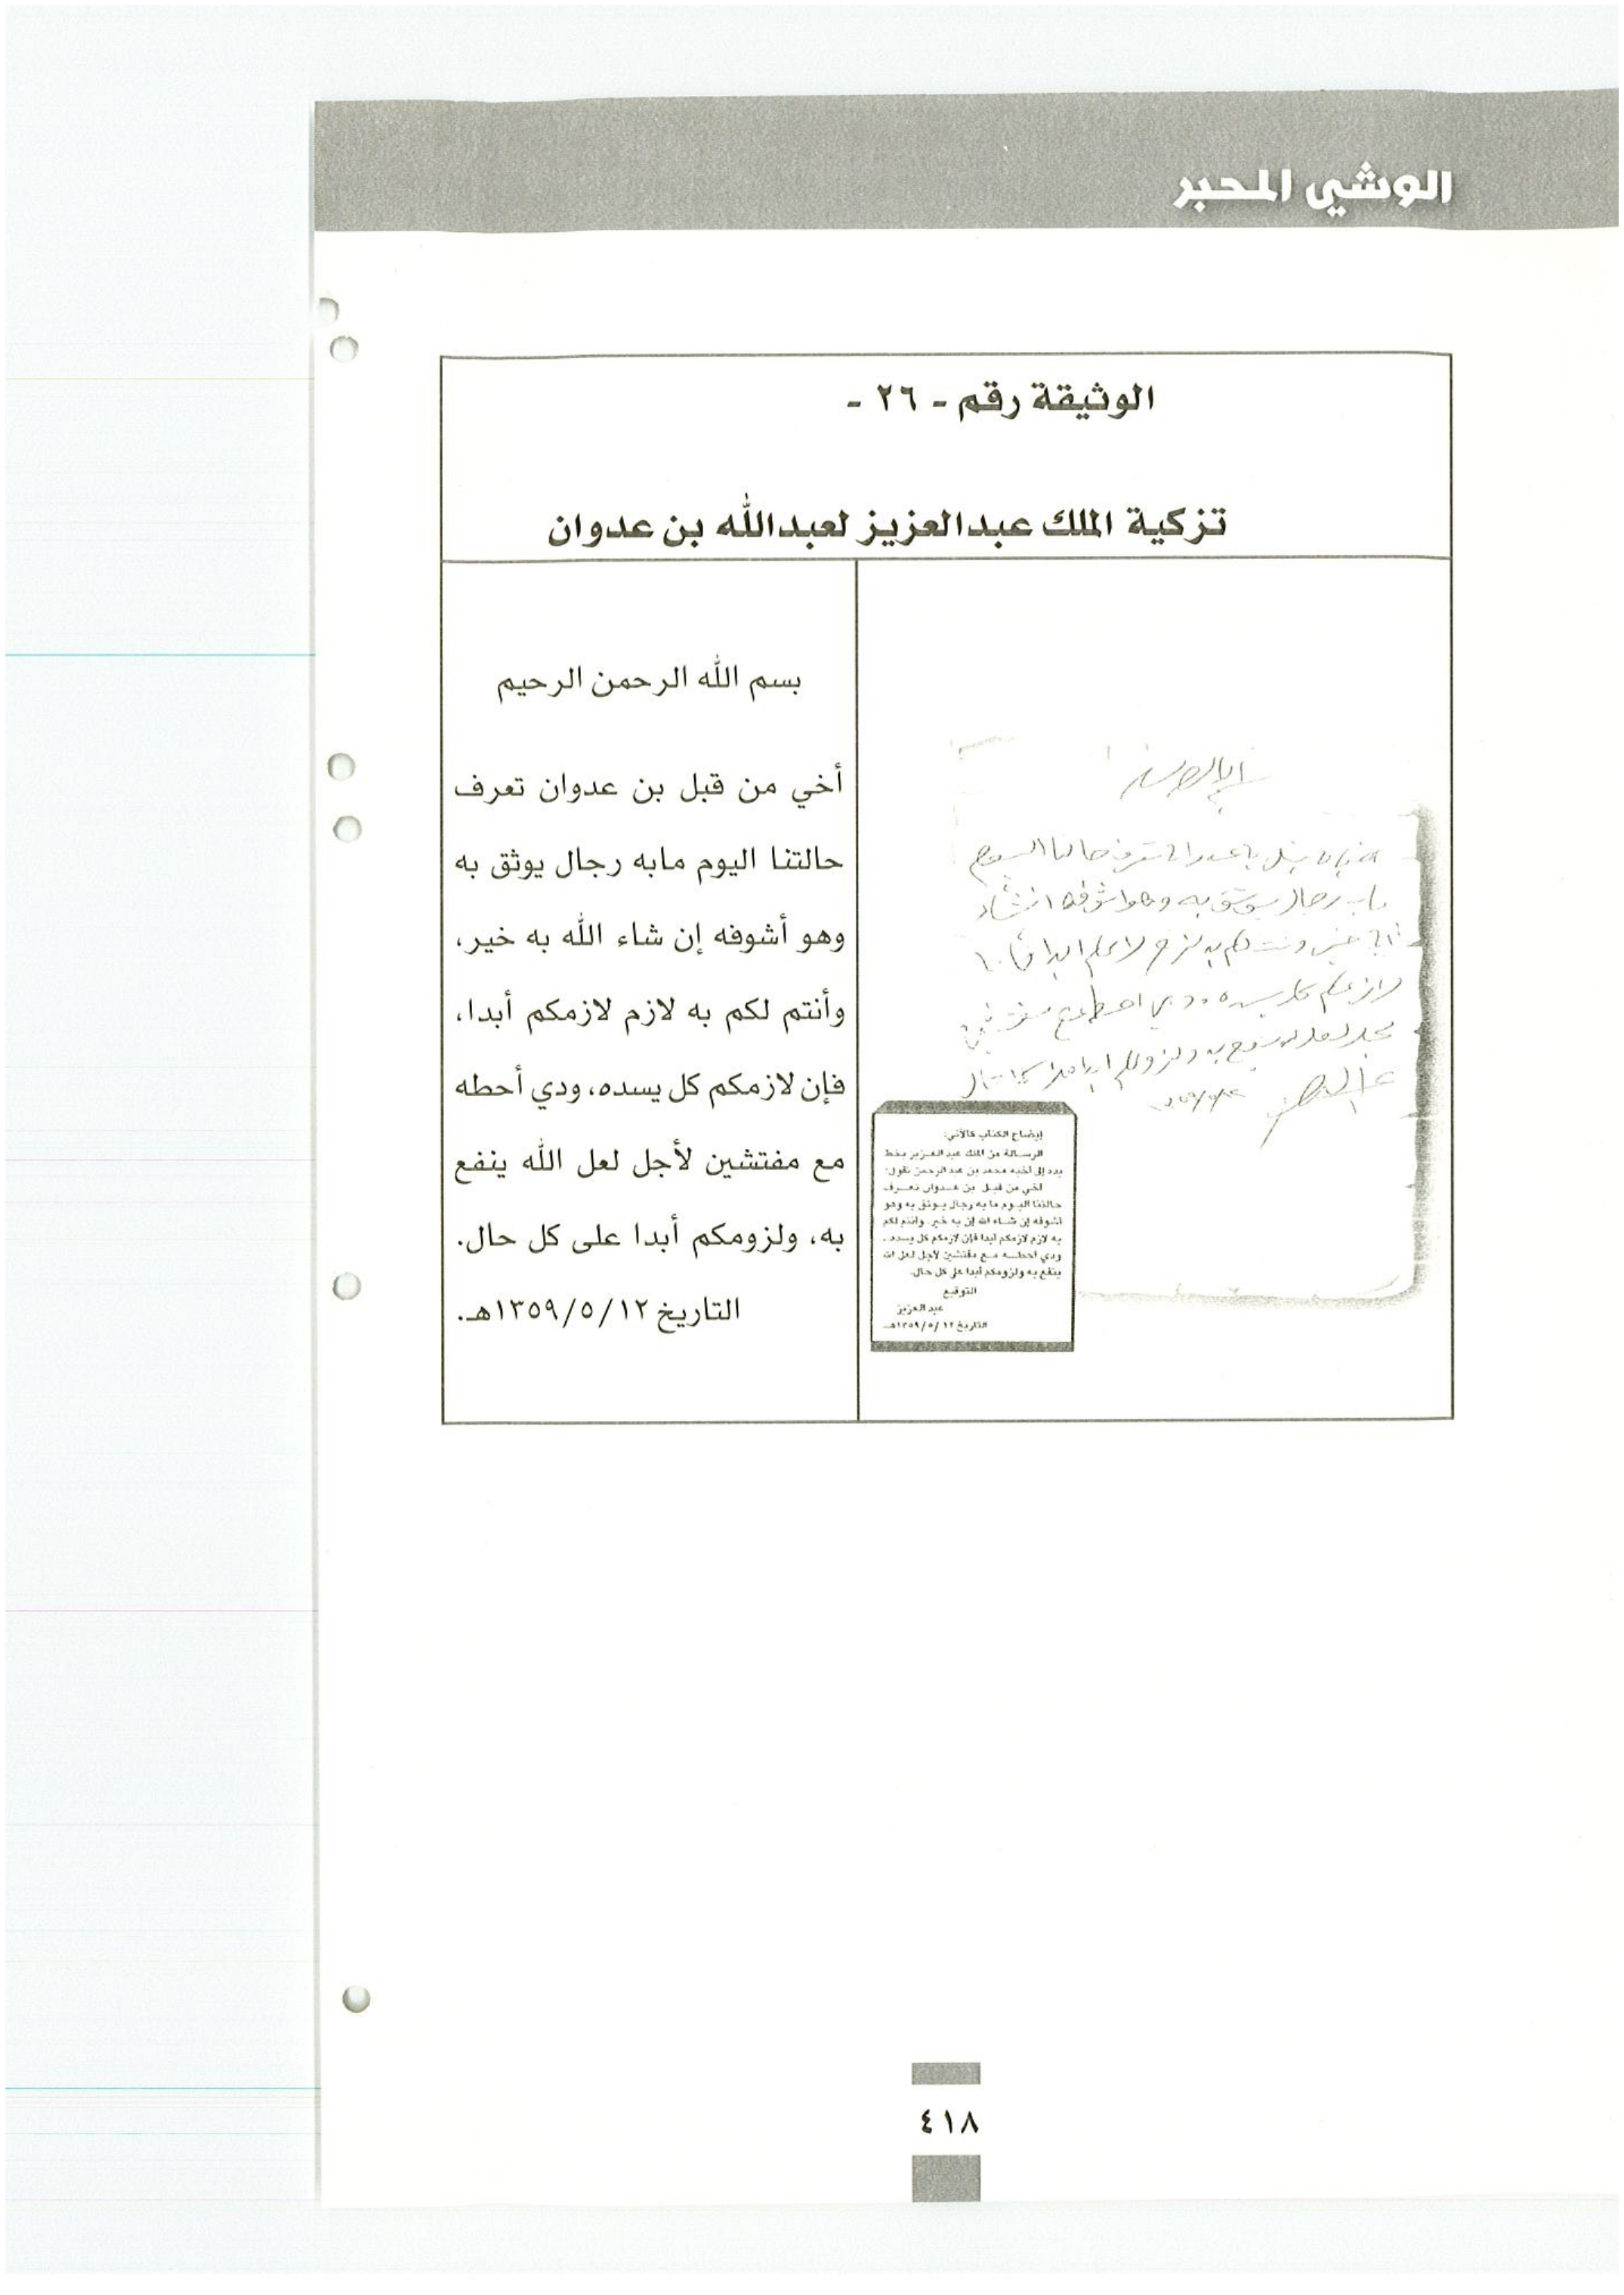 الوشي المحبر
الوثيقة رقم - ٢٦ -
تزكية الملك عبدالعزيز لعبدالله بن عدوان
إيضاح الكتاب كالآتي:
الرسالة من الملك عبد العزيز بخط
يده إلى أخيه محمد بن عبد الرحمن تقول:
أخي من قبل بن عدوان تعرف
حالتنا اليوم ما به رجال يوثق به وهو
أشوفه إن شاء الله إن به خير. وأنتم لكم
به لازم لازمكم أبدا فإن لازمكم كل يسده.
ودي أحطه مع مفتشين لأجل لعل الله
ينفع به ولزومكم أبدا على كل حال.
التوقيع
عبد العزيز
التاريخ ١٢ /٥/ ١٣٥٩هـ
بسم الله الرحمن الرحيم
أخي من قبل بن عدوان تعرف
حالتنا اليوم مابه رجال يوثق به
وهو أشوفه إن شاء الله به خير،
وأنتم لكم به لازم لازمكم أبدا،
فإن لازمكم كل يسده، ودي أحطه
مع مفتشين لأجل لعل الله ينفع
به، ولزومكم أبدا على كل حال.
التاريخ ١٣٥٩/٥/١٢هـ.
٤١٨